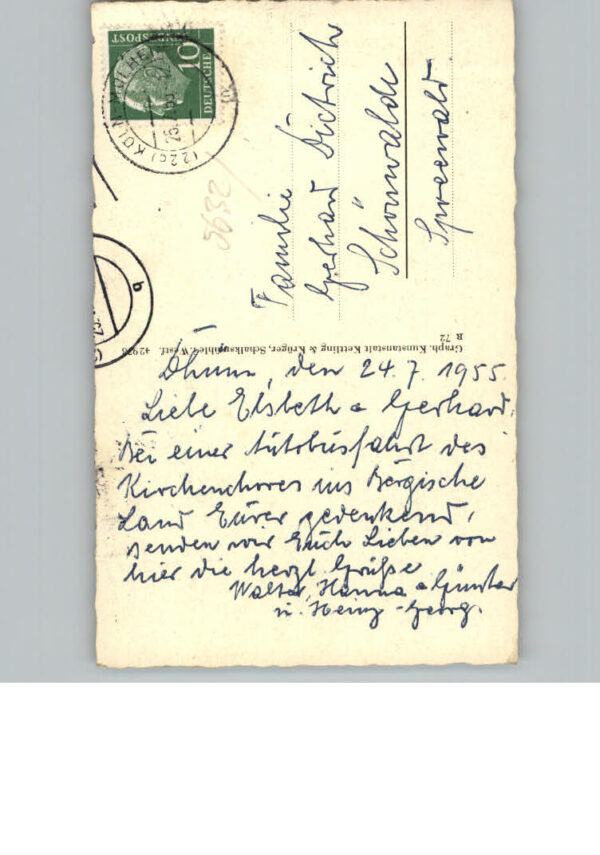 DEUTSCHE
BUNDESPOST
10
(22c) KÖLN-MÜLHEIM
b
5632/
Familie
Gerhard Dietrich
Schönwalde
Spreewald
R 72
Graph. Kunstanstalt Kettling & Krüger, Schalksmühle i. Westf. 42976
Dhünn, den 24.7.1955.
Liebe Elsbeth u Gerhard.
Bei einer Autobusfahrt des
Kirchenchores ins Bergische
Land Eurer gedenkend,
senden wir Euch Lieben von
hier die herzl. Grüße
Walter, Hanna u Günter
u. Heinz-Georg.